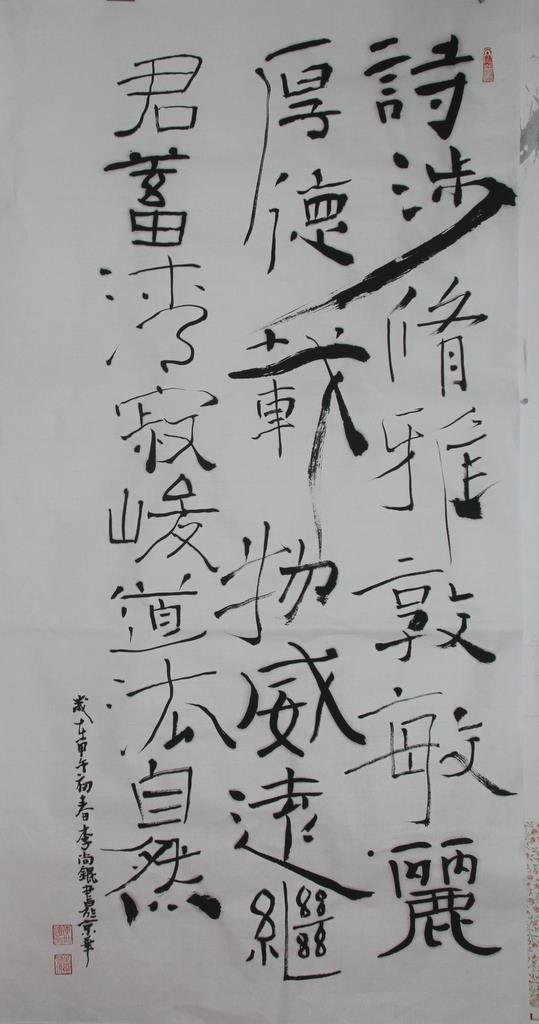 詩涉脩雅敦敏麗
厚德載物威遠繼
君蓄清寂峻道法自然
歲在甲午初春李尚錕書於京華